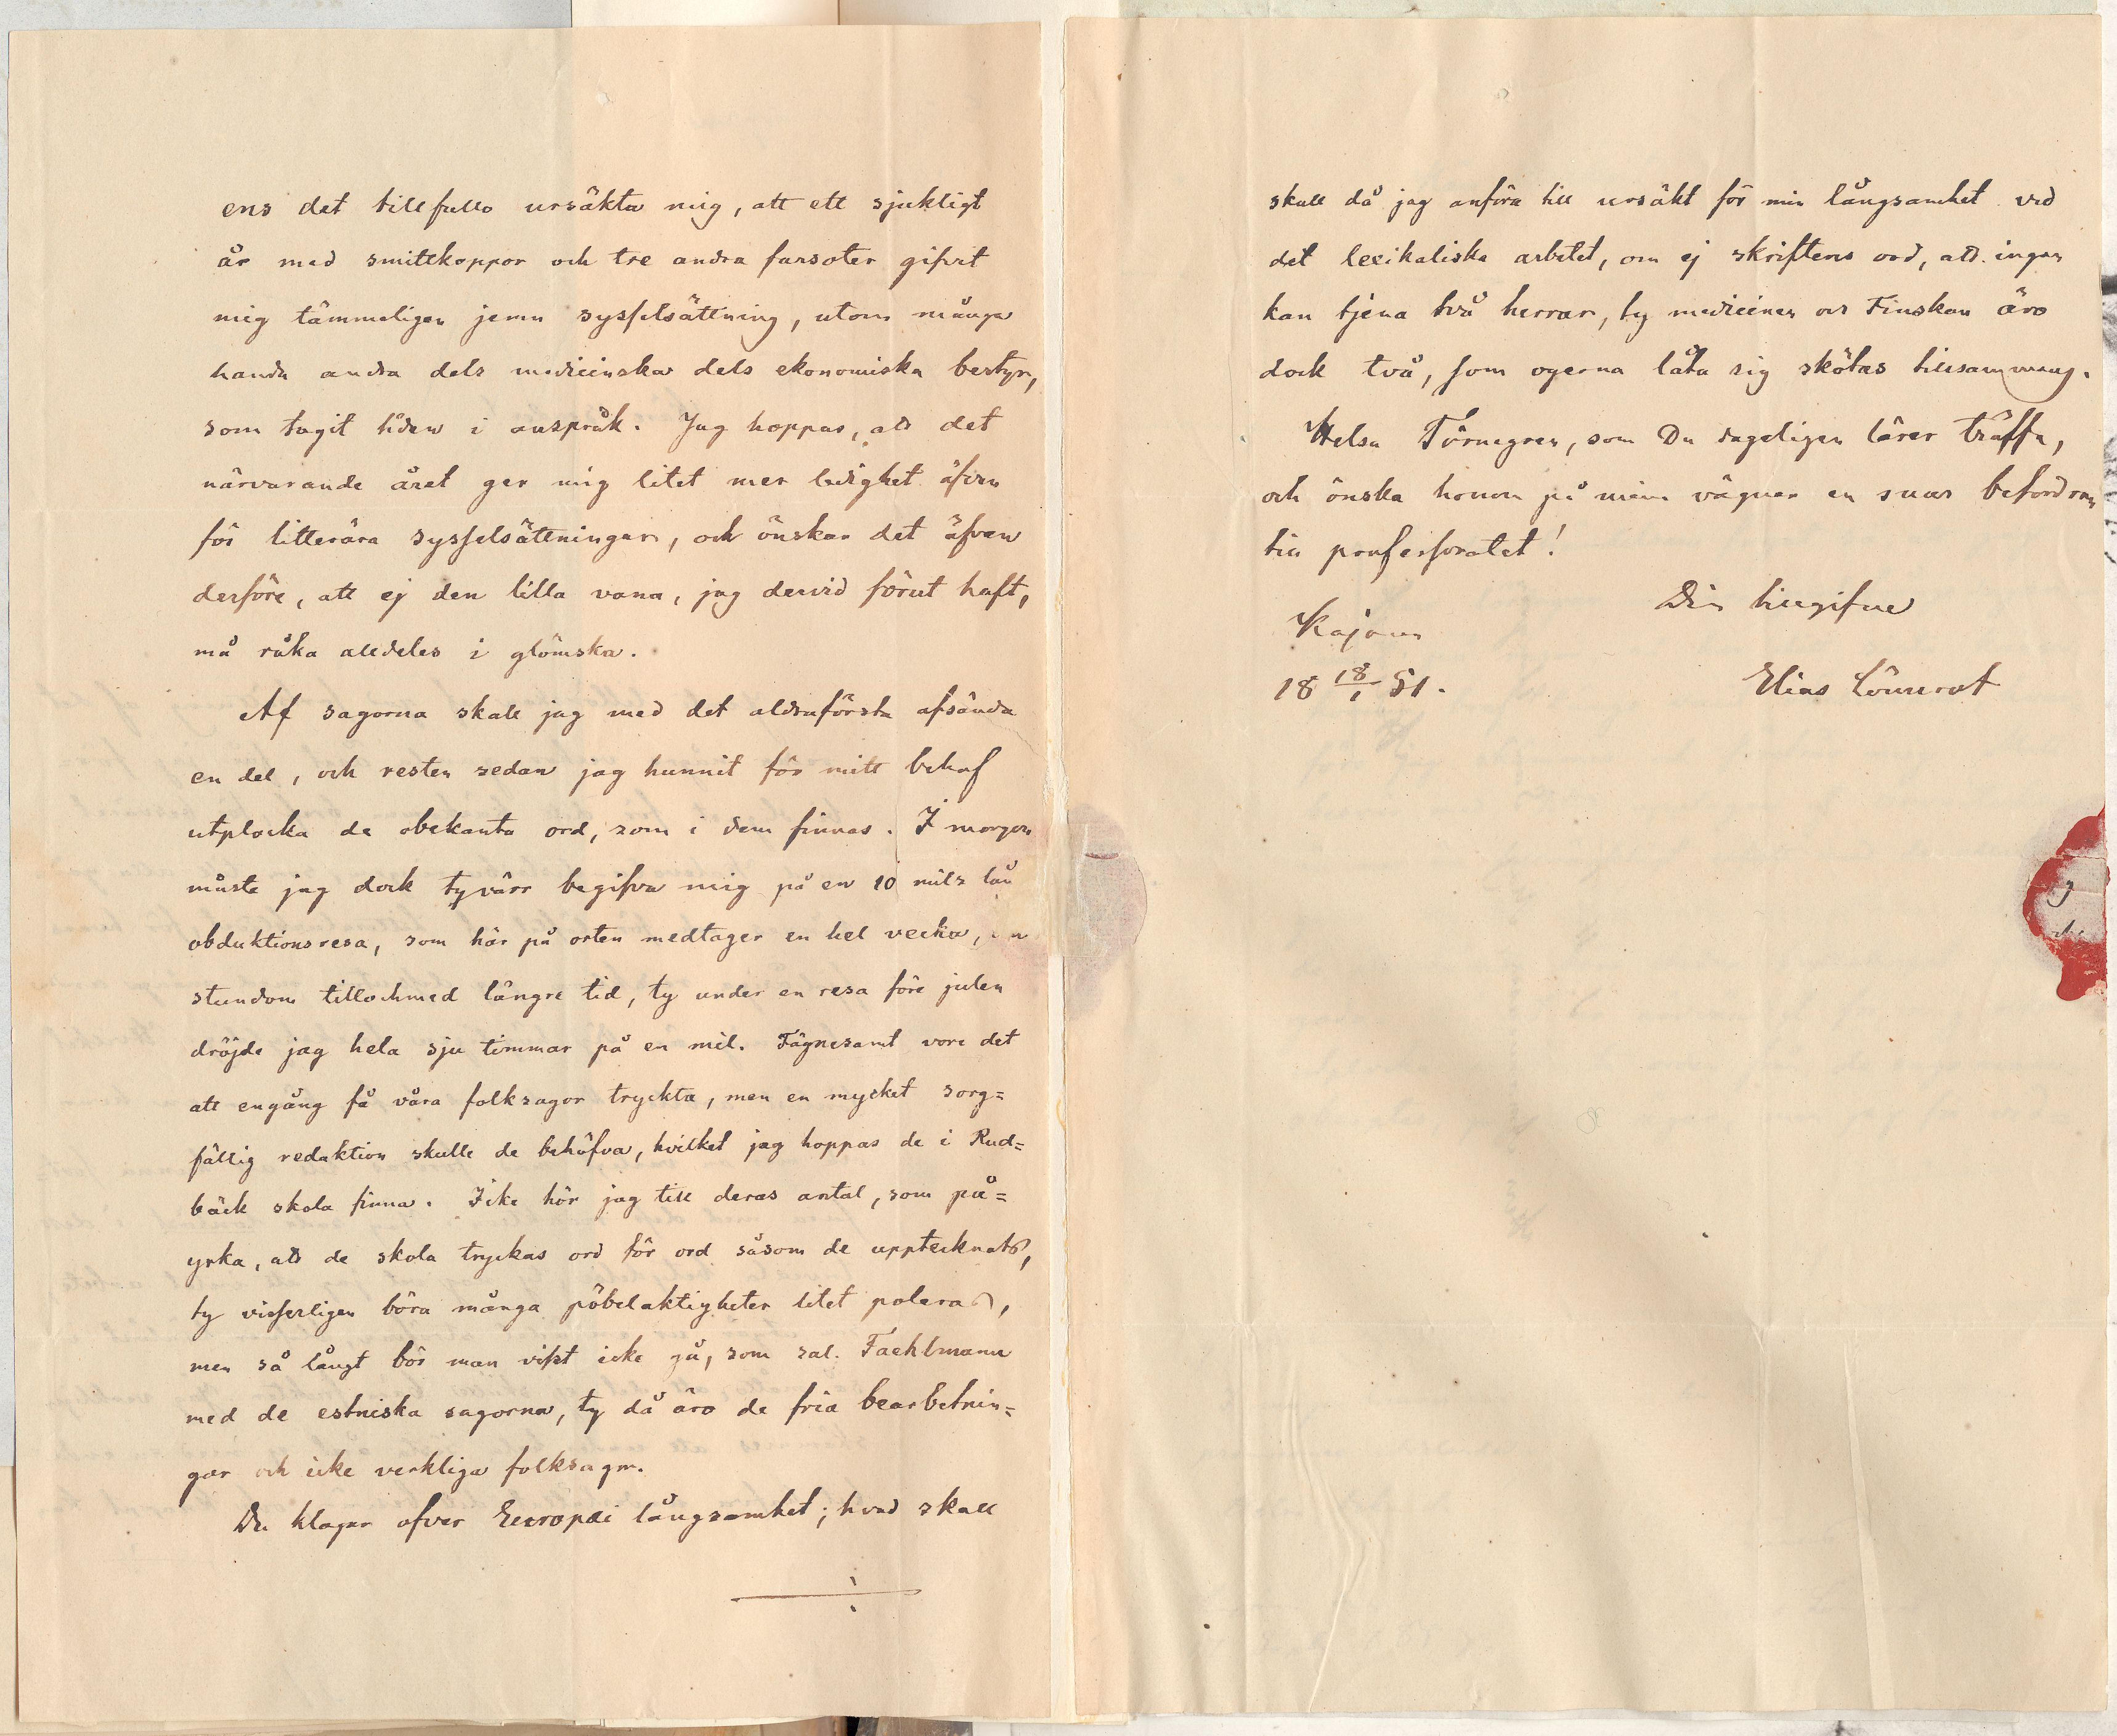 ens det tillfullo ursäkta mig, att ett sjukligt
år med smittkoppor och tre andra farsoter gifvit
mig tämmeligen jemn sysselsättning, utom många
handa andra dels medicinska dels ekonomiska bestyr,
som tagit tiden i anspråk. Jag hoppas, att det
närvarande året ger mig litet mer ledighet äfven
för litterära sysselsättningar, och önskar det äfven
derföre, att ej den lilla vana, jag dervid förut haft,
må råka alldeles i glömska.
Af sagorna skall jag med det aldraförsta afsända
en del, och resten sedan jag hunnit för mitt behof
utplocka de obekanta ord, som i dem finnas. I morgon
måste jag dock tyvärr begifva mig på en 10 mils
obduktionsresa, som här på orten medtager en hel vecka,
stundom tillochmed längre tid, ty under en resa före julen
dröjde jag hela sju timmar på en mil. Fägnesamt vore det
att engång få våra folksagor tryckta, men en mycket sorg=
fällig redaktion skulle de behöfva, hvilket jag hoppas de i Rud=
bäck skola finna. Icke hör jag till deras antal, som på=
yrka, att de skola tryckas ord för ord såsom de upptecknats,
ty visserligen böra många pöbelaktigheter litet poleras,
men så långt bör man visst icke gå, som sal. Faehlmann
med de estniska sagorna, ty då äro de fria bearbetnin=
gar och icke verkliga folksagor.
Du klagar öfver Europæi långsamhet; hvad skall
skall då jag anföra till ursäkt för min långsamhet vid
det lexikaliska arbetet, om ej skriftens ord, att ingen
kan tjena två herrar, ty medicinen och Finskan äro
dock två, som ogerna låta sig skötas tillsammans.
Helsa Törnegren, som Du dageligen lärer träffa,
och önska honom på mina vägnar en snar befordran
till professoratet!
Din tillgifne
Kajana
18 18/1 51.
Elias Lönnrot